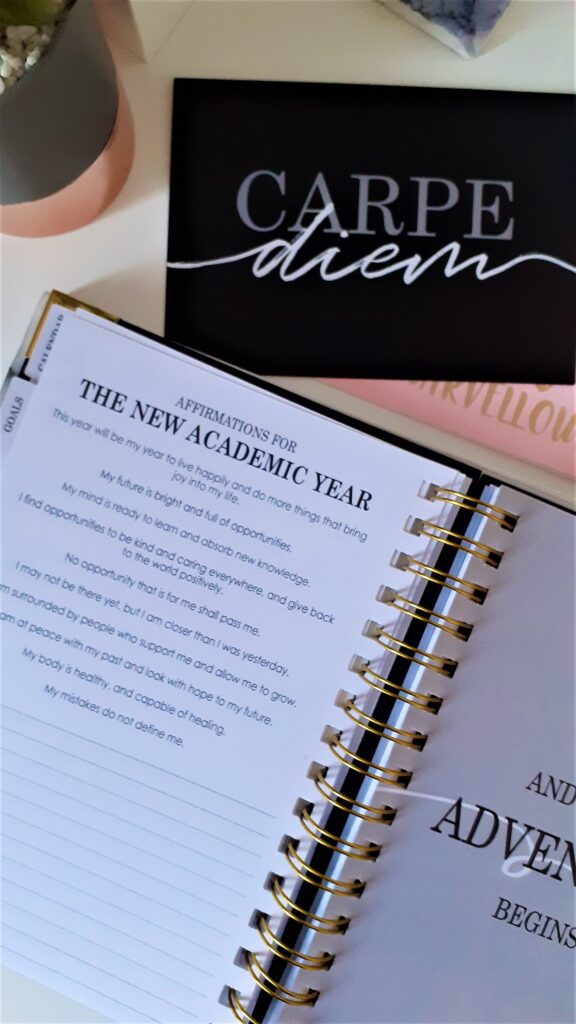 CARPE
diem
CALENDAR
GOALS
AFFIRMATIONS FOR
THE NEW ACADEMIC YEAR
This year will be my year to live happily and do more things that bring
joy into my life.
My future is bright and full of opportunities.
My mind is ready to learn and absorb new knowledge.
I find opportunities to be kind and caring everywhere, and give back
to the world positively.
No opportunity that is for me shall pass me.
I may not be there yet, but I am closer than I was yesterday.
surrounded by people who support me and allow me to grow.
am at peace with my past and look with hope to my future.
My body is healthy, and capable of healing.
My mistakes do not define me.
AND
ADVEN
BEGINS